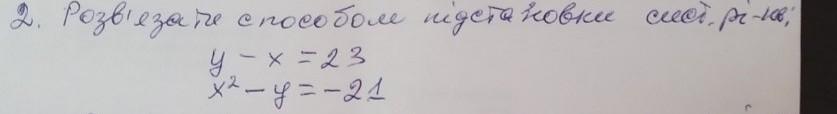 2. Розв'язати способом підстановки сист. рі-нь:
y - x = 23
x² - y = -21